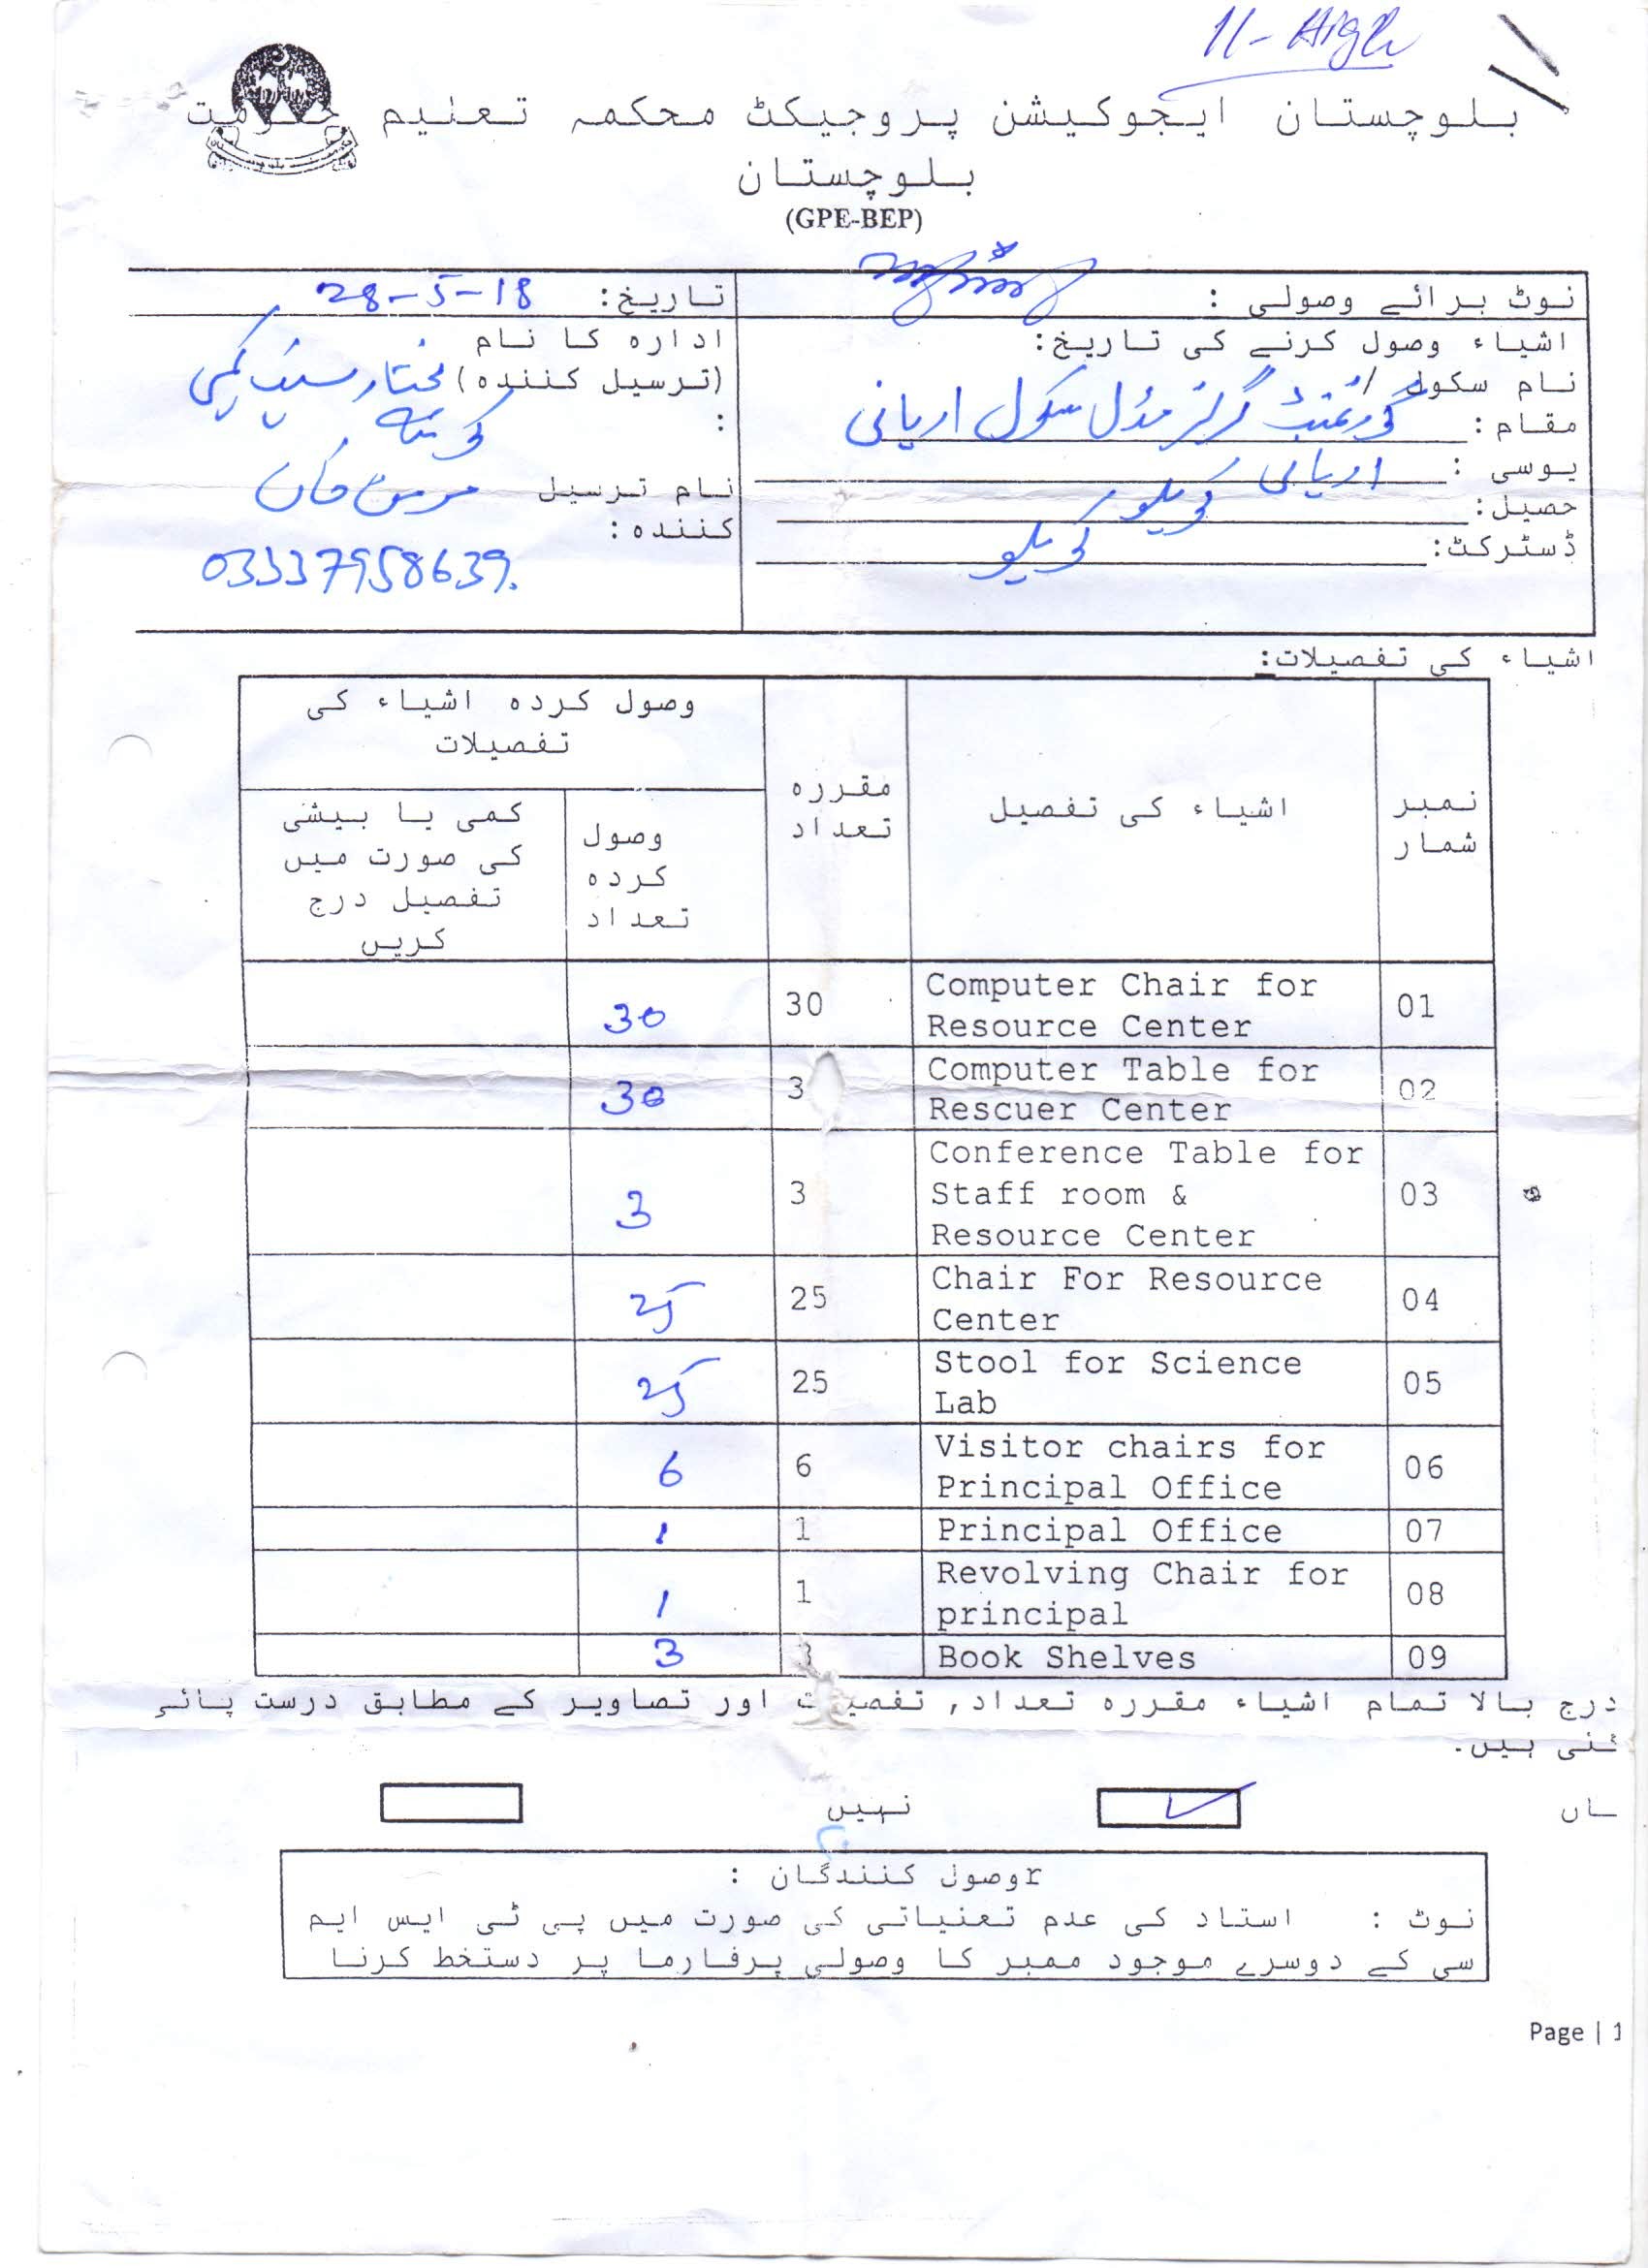 11- High
بلوچستان ایجوکیشن پروجیکٹ محکمہ تعلیم حکومت
بلوچستان
(GPE-BEP)
نوٹ برائے وصولی :
تاریخ: 28-5-18
اشیاء وصول کرنے کی تاریخ:
نام سکول /
مقام : گورنمنٹ گرلز مڈل سکول اریانی
یوسی : اریانی
حصیل: کوہلو
ڈسٹرکٹ: کوہلو
ادارہ کا نام
(ترسیل کنندہ) مختار سنز کمپنی
: کوئٹہ
نام ترسیل خان
کنندہ:
03337958639.
اشیاء کی تفصیلات:
نمبر شمار
اشیاء کی تفصیل
مقررہ تعداد
وصول کردہ اشیاء کی
تفصیلات
وصول کردہ تعداد
کمی یا بیشی
کی صورت میں
تفصیل درج
کریں
01 Computer Chair for Resource Center 30 30
02 Computer Table for Rescuer Center 3 30
03 Conference Table for Staff room & Resource Center 3 3
04 Chair For Resource Center 25 25
05 Stool for Science Lab 25 25
06 Visitor chairs for Principal Office 6 6
07 Principal Office 1 1
08 Revolving Chair for principal 1 1
09 Book Shelves 3
درج بالا تمام اشیاء مقررہ تعداد, تفصیلات اور تصاویر کے مطابق درست پائی
گئی ہیں.
ہاں
نہیں
rوصول کنندگان :
نوٹ : استاد کی عدم تعنیاتی کی صورت میں پی ٹی ایس ایم
سی کے دوسرے موجود ممبر کا وصولی پرفارما پر دستخط کرنا
Page | 1